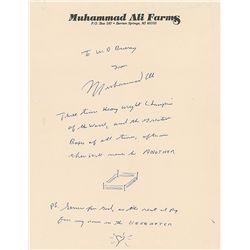 Muhammad Ali Farms
P.O. Box 187 • Berrien Springs, MI 49103
To W.D.
from
Muhammad Ali
Three time Heavy weight Champion
of the World, and the Greatest
Boxer of all times, of whom
there will never be ANOTHER
P.S. Service for God, is the rent I Pay
for my room in the HEREAFTER